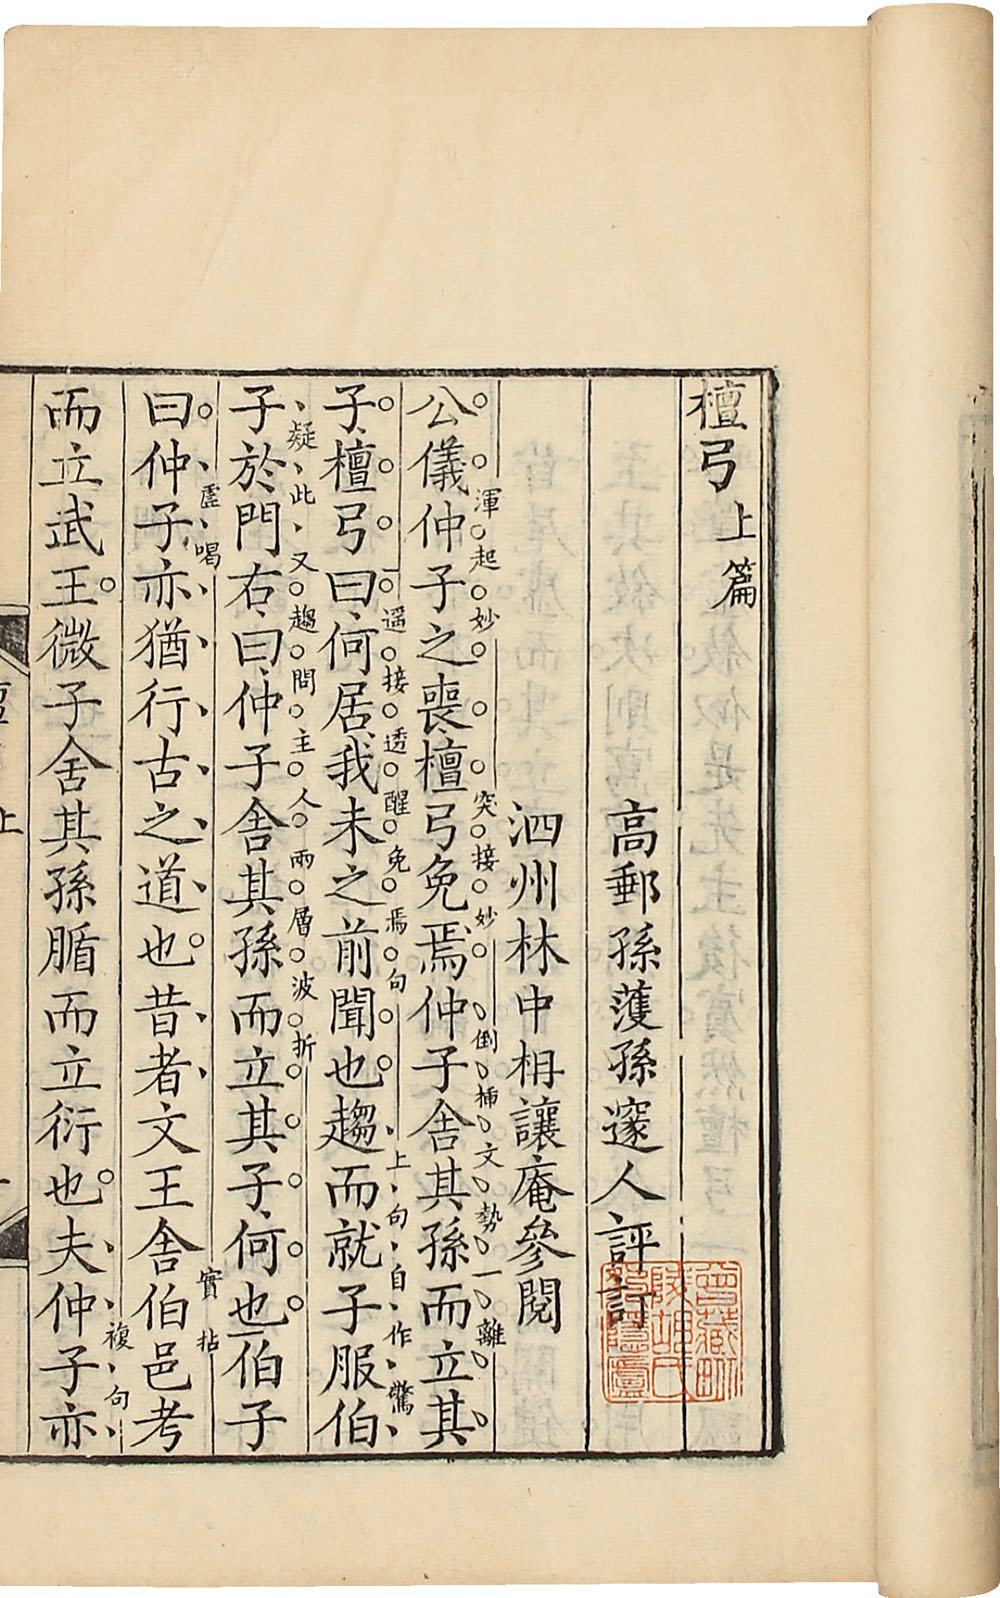 檀弓上篇
高郵孫濩孫邃人評訂
泗州林中枏讓庵參閱
公儀仲子之喪檀弓免焉仲子舍其孫而立其
渾起妙
突接妙
倒插文勢一離
子檀弓曰何居我未之前聞也趨而就子服伯
遥接透醒免焉句
上句自作驚
子於門右曰仲子舍其孫而立其子何也伯子
疑此又趨問主人兩層波折
曰仲子亦猶行古之道也昔者文王舍伯邑考
虛喝
實拈
而立武王微子舍其孫腯而立衍也夫仲子亦
複句
上
曾藏畊
陵胡氏
隱廬